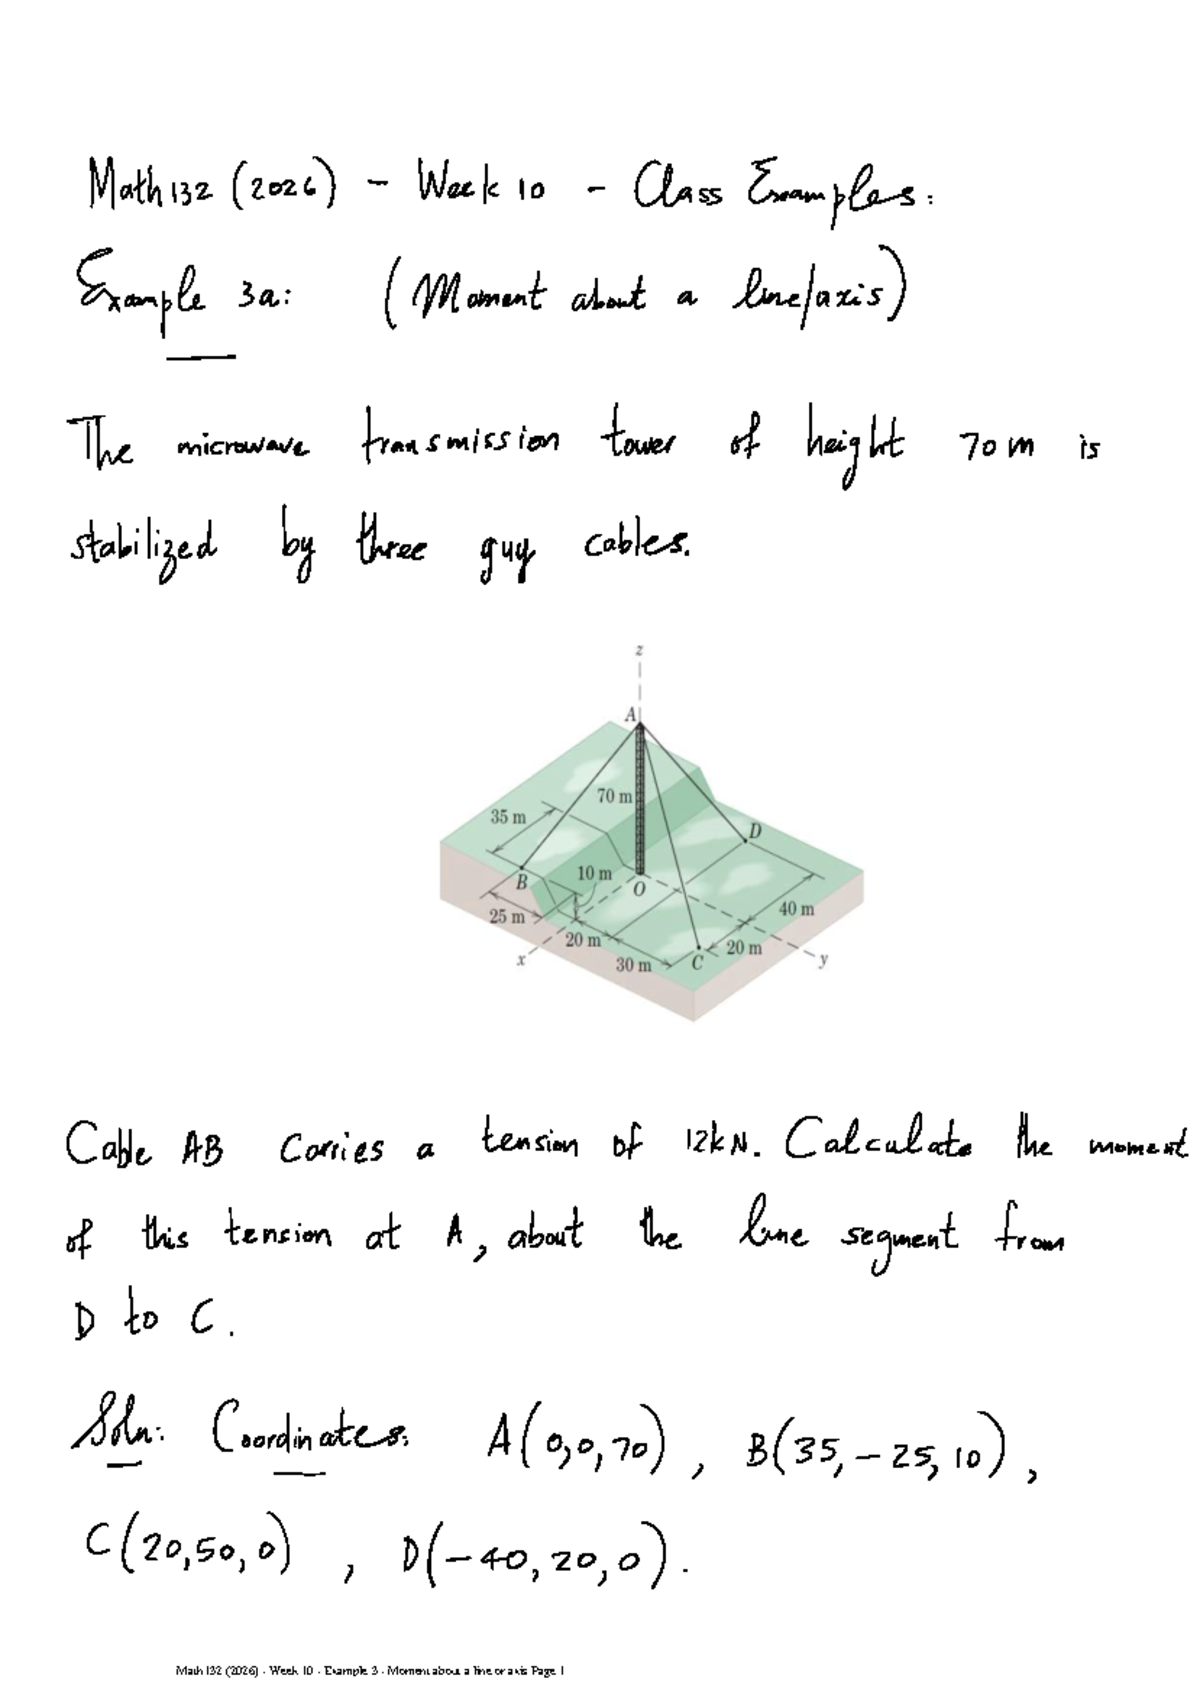 Math 132 (2026) - Week 10 - Class Examples:
Example 3a: (Moment about a line/axis)
The microwave transmission tower of height 70 m is
stabilized by three guy cables.
z
A
70 m
35 m
D
B
10 m
O
25 m
40 m
20 m
20 m
x
30 m
C
y
Cable AB carries a tension of 12kN. Calculate the moment
of this tension at A, about the line segment from
D to C.
Soln: Coordinates: A(0,0,70), B(35,-25,10),
C(20,50,0), D(-40,20,0).
Math 132 (2026) - Week 10 - Example 3 - Moment about a line or axis Page 1